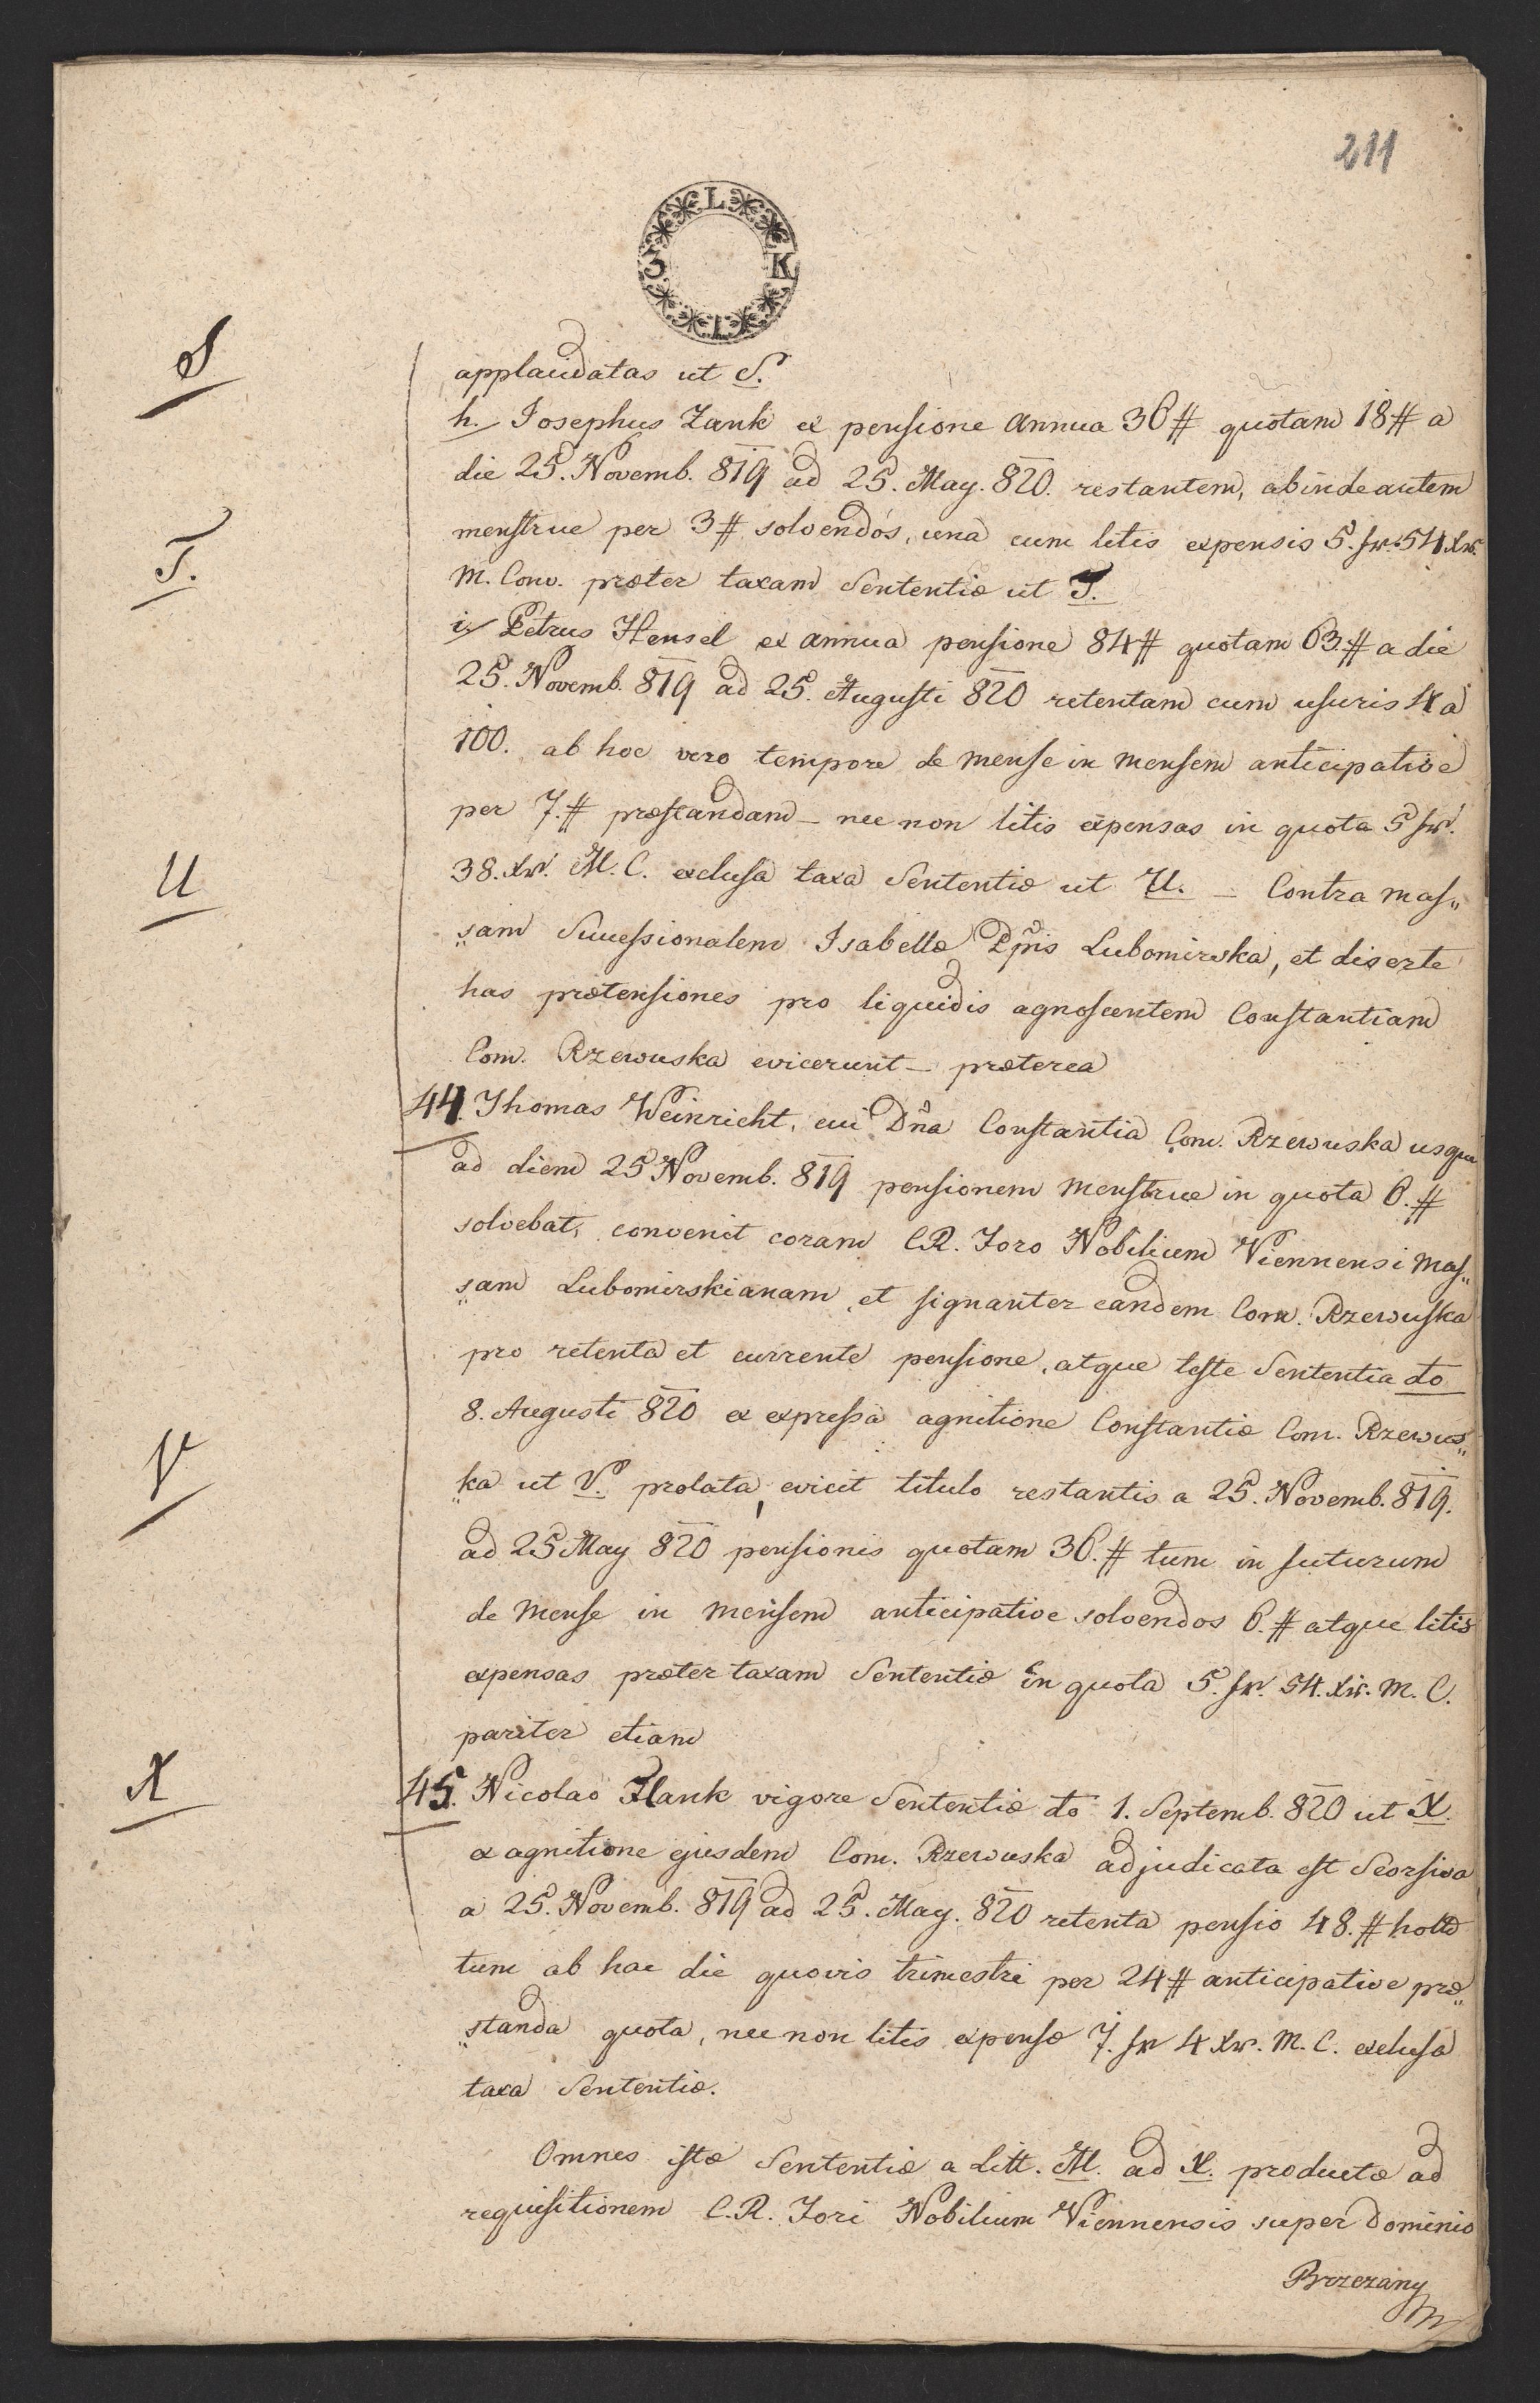 211
L
3 K
I
S
applaudatas ut S.
h. Josephus Zank ex pensione annua 36# quotam 18# a
die 25. Novemb. 819 ad 25. May. 820. restantem, abinde autem
T.
menstrue per 3# solvendos, una cum litis expensis 5. fr. 54 xr.
M. Conv. præter taxam Sententiæ ut T.
i. Petrus Hensel ex annua pensione 84# quotam 63.# a die
25. Novemb. 819 ad 25. Augusti 820 retentam cum usuris 4 a
100. ab hoc vero tempore de mense in mensem anticipative
per 7.# præstandam – nec non litis expensas in quota 5 fr.
U
38. xr. M. C. exclusa taxa Sententiæ ut U. – Contra mas„
„sam Successionalem Isabellæ Ppis Lubomirska, et diserte
has prætensiones pro liquidis agnoscentem Constantiam
Com. Rzewuska evicerunt – præterea
44. Thomas Weinricht, cui Dña Constantia Com. Rzewuska usque
ad diem 25 Novemb. 819 pensionem menstrue in quota 6.#
solvebat, convenit coram C.R. Foro Nobilium Viennensi mas„
„sam Lubomirskianam, et signanter eandem Com. Rzewuska
pro retenta et currente pensione, atque teste Sententia dto
8. Augusti 820 ex expressa agnitione Constantiæ Com. Rzewus„
V
„ka ut V. prolata, evicit titulo restantis a 25. Novemb. 819.
ad 25 May 820 pensionis quotam 36.# tum in futurum
de mense in mensem anticipative solvendos 6.# atque litis
expensas præter taxam Sententiæ in quota 5. fr. 54. xr. M. C.
pariter etiam
X
45. Nicolao Hank vigore Sententiæ dto 1. Septemb. 820 ut X.
ex agnitione ejusdem Com. Rzewuska adjudicata est Seorsiva
a 25. Novemb. 819 ad 25. May. 820 retenta pensio 48.# holld
tum ab hac die quovis trimestri per 24# anticipative præ„
„standa quota, nec non litis expensæ 7. fr 4 xr. M. C. exclusa
taxa Sententiæ.
Omnes istæ Sententiæ a Litt. M. ad X. productæ ad
requisitionem C.R. Fori Nobilium Viennensis super Dominio
Brzezany